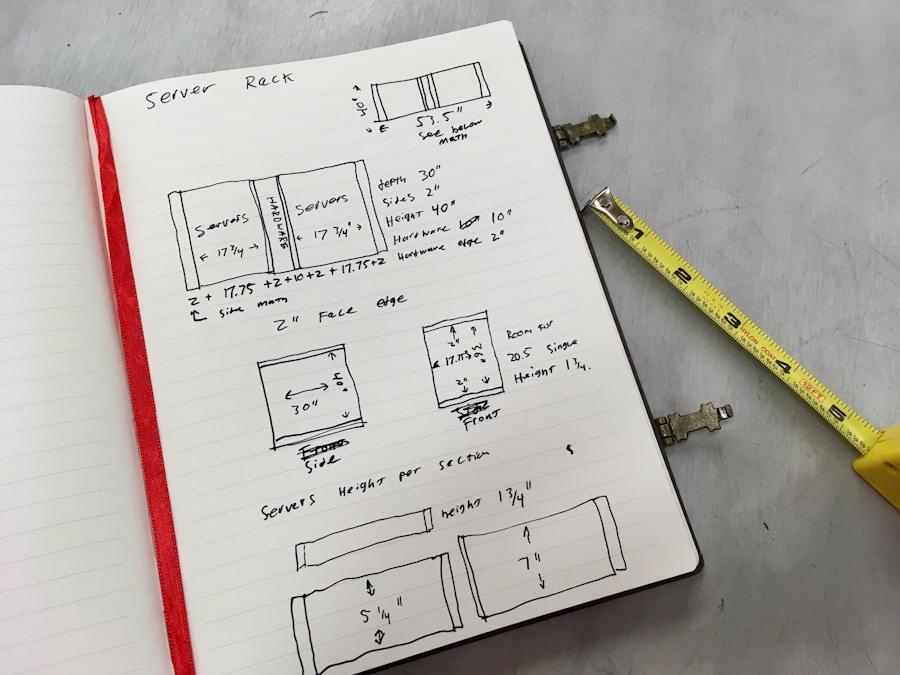 Server Rack
40"
53.5"
see below
math
Servers
17 3/4"
HARDWARE
Servers
17 3/4"
depth 30"
Sides 2"
Height 40"
Hardware 10"
Hardware edge 2"
2 + 17.75 +2+10+2 + 17.75+2
side math
2" Face edge
30"
40"
Side
2"
17.75
36"
2"
Front
Room for
20.5 single
Height 1 3/4.
Servers Height per section
height 1 3/4"
5 1/4"
7"
1
2
3
NYLON COAT
4
5